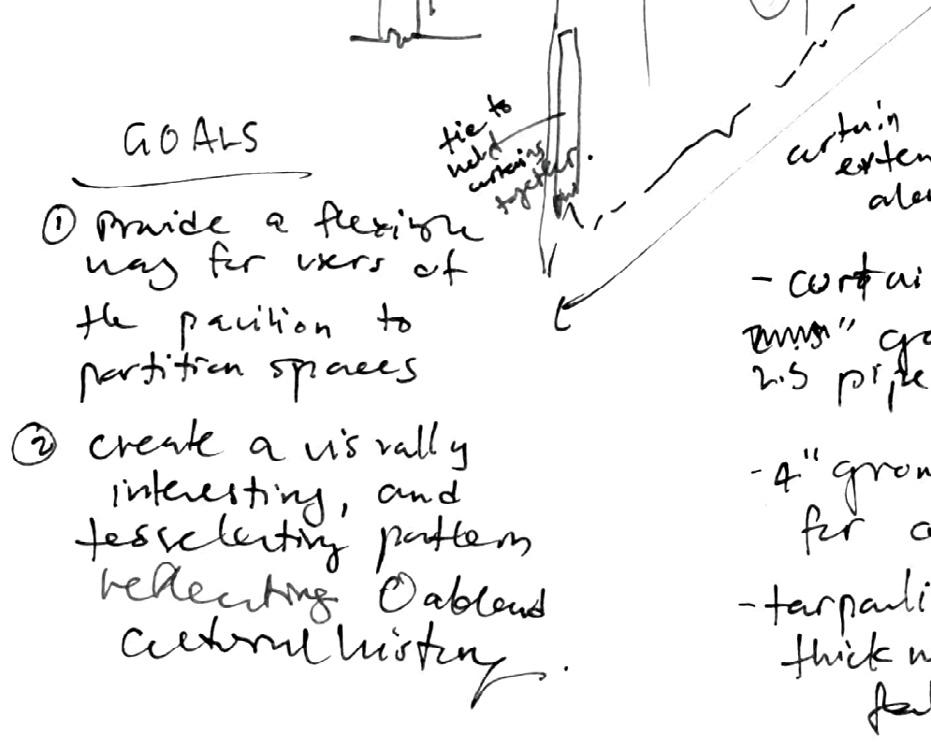 GOALS
① Provide a flexible
way for users of
the pavilion to
partition spaces
② create a visually
interesting, and
tesselating pattern
reflecting Oakland
cultural history.
tie to
hold
curtains
together
curtain
exten
alon
- curtai
2.5 pipe
- 4" grom
for
- tarpauli
thick